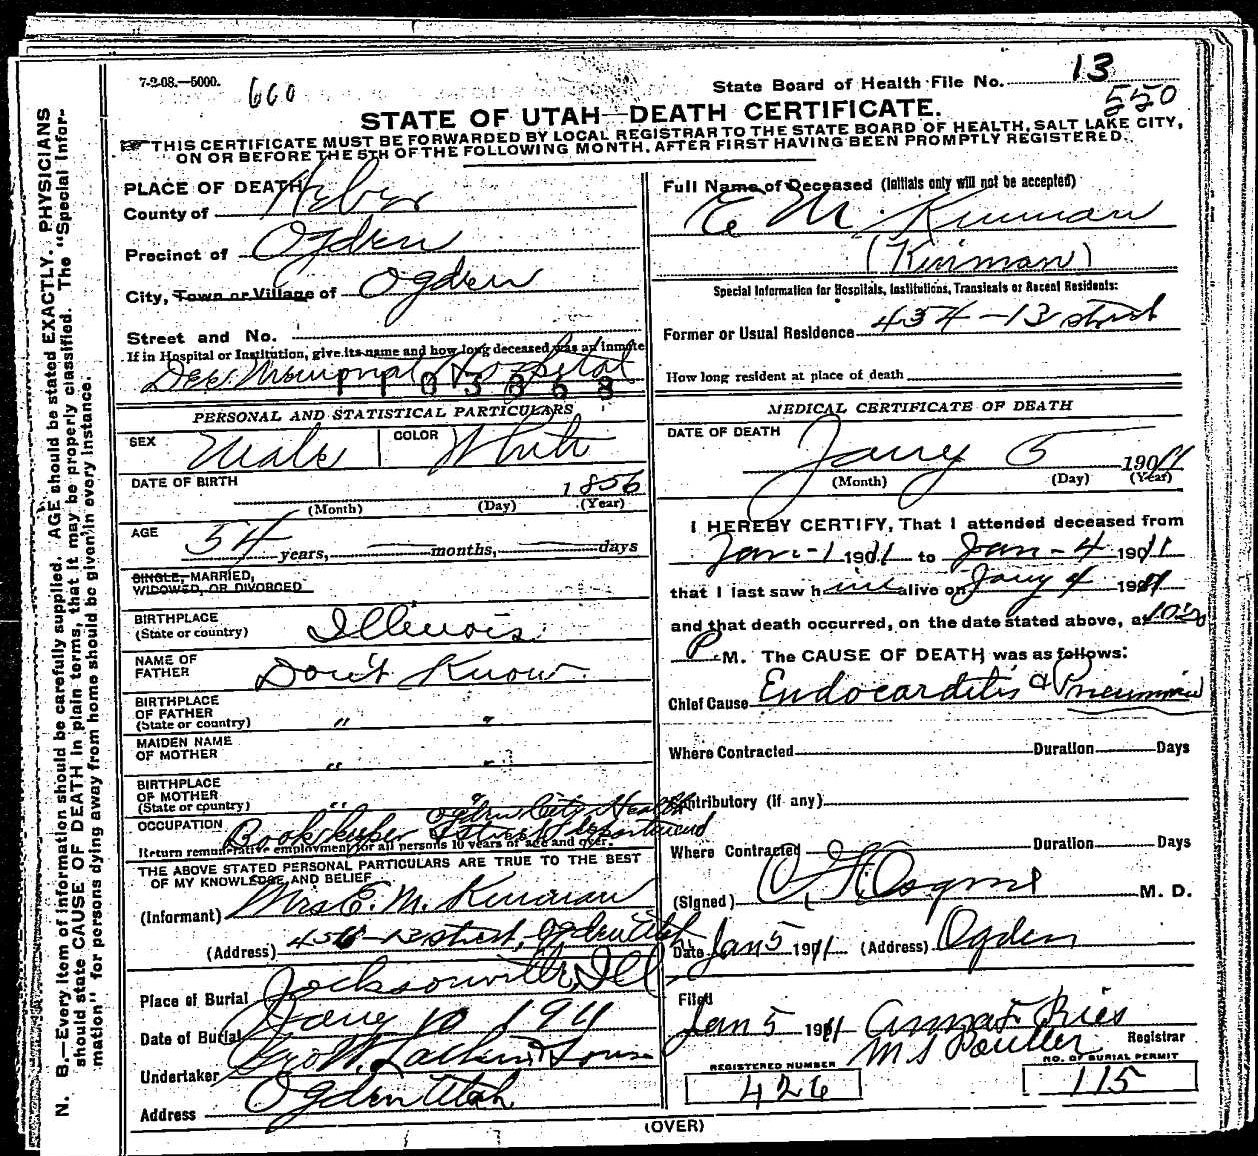 7-2-08.—5000.
660
State Board of Health File No. 13
550
STATE OF UTAH—DEATH CERTIFICATE.
THIS CERTIFICATE MUST BE FORWARDED BY LOCAL REGISTRAR TO THE STATE BOARD OF HEALTH, SALT LAKE CITY,
ON OR BEFORE THE 5TH OF THE FOLLOWING MONTH, AFTER FIRST HAVING BEEN PROMPTLY REGISTERED.
N. B.—Every item of information should be carefully supplied. AGE should be stated EXACTLY. PHYSICIANS
should state CAUSE OF DEATH in plain terms, that it may be properly classified. The "Special Infor-
mation" for persons dying away from home should be given in every instance.
PLACE OF DEATH
County of Weber
Precinct of Ogden
City, Town or Village of Ogden
Street and No.
If in Hospital or Institution, give its name and how long deceased was an inmate
Dee Memorial Hospital
1103868
PERSONAL AND STATISTICAL PARTICULARS
SEX Male COLOR White
DATE OF BIRTH 1856
(Month) (Day) (Year)
AGE
54 years, — months, — days
SINGLE, MARRIED,
WIDOWED, OR DIVORCED
BIRTHPLACE
(State or country) Illinois
NAME OF
FATHER Don't Know
BIRTHPLACE
OF FATHER
(State or country) " "
MAIDEN NAME
OF MOTHER " "
BIRTHPLACE
OF MOTHER
(State or country) " "
OCCUPATION Bookkeeper Ogden City Health
& Street Department
Return remunerative employment for all persons 10 years of age and over.
THE ABOVE STATED PERSONAL PARTICULARS ARE TRUE TO THE BEST
OF MY KNOWLEDGE AND BELIEF
(Informant) Mrs E. M. Kinman
(Address) 454-13 street, Ogden Utah
Place of Burial Jacksonville, Ill
Date of Burial Jany 10 1911
Undertaker Geo W. Larkin & Sons
Address Ogden Utah
Full Name of Deceased (Initials only will not be accepted)
E. M. Kinman
(Kinman)
Special Information for Hospitals, Institutions, Transients or Recent Residents:
Former or Usual Residence 454-13 street
How long resident at place of death
MEDICAL CERTIFICATE OF DEATH
DATE OF DEATH
Jany 5 1911
(Month) (Day) (Year)
I HEREBY CERTIFY, That I attended deceased from
Jan-1 1911 to Jan-4 1911
that I last saw him alive on Jany 4 1911
and that death occurred, on the date stated above, at
P.M. The CAUSE OF DEATH was as follows:
Chief Cause Endocarditis & Pneumonia
Where Contracted Duration Days
Contributory (if any)
Where Contracted Duration Days
(Signed) M. D.
Date Jan 5 1911 (Address) Ogden
Filed
Jan 5 1911 Anna F Ries
Registrar
REGISTERED NUMBER
426
NO. OF BURIAL PERMIT
115
(OVER)